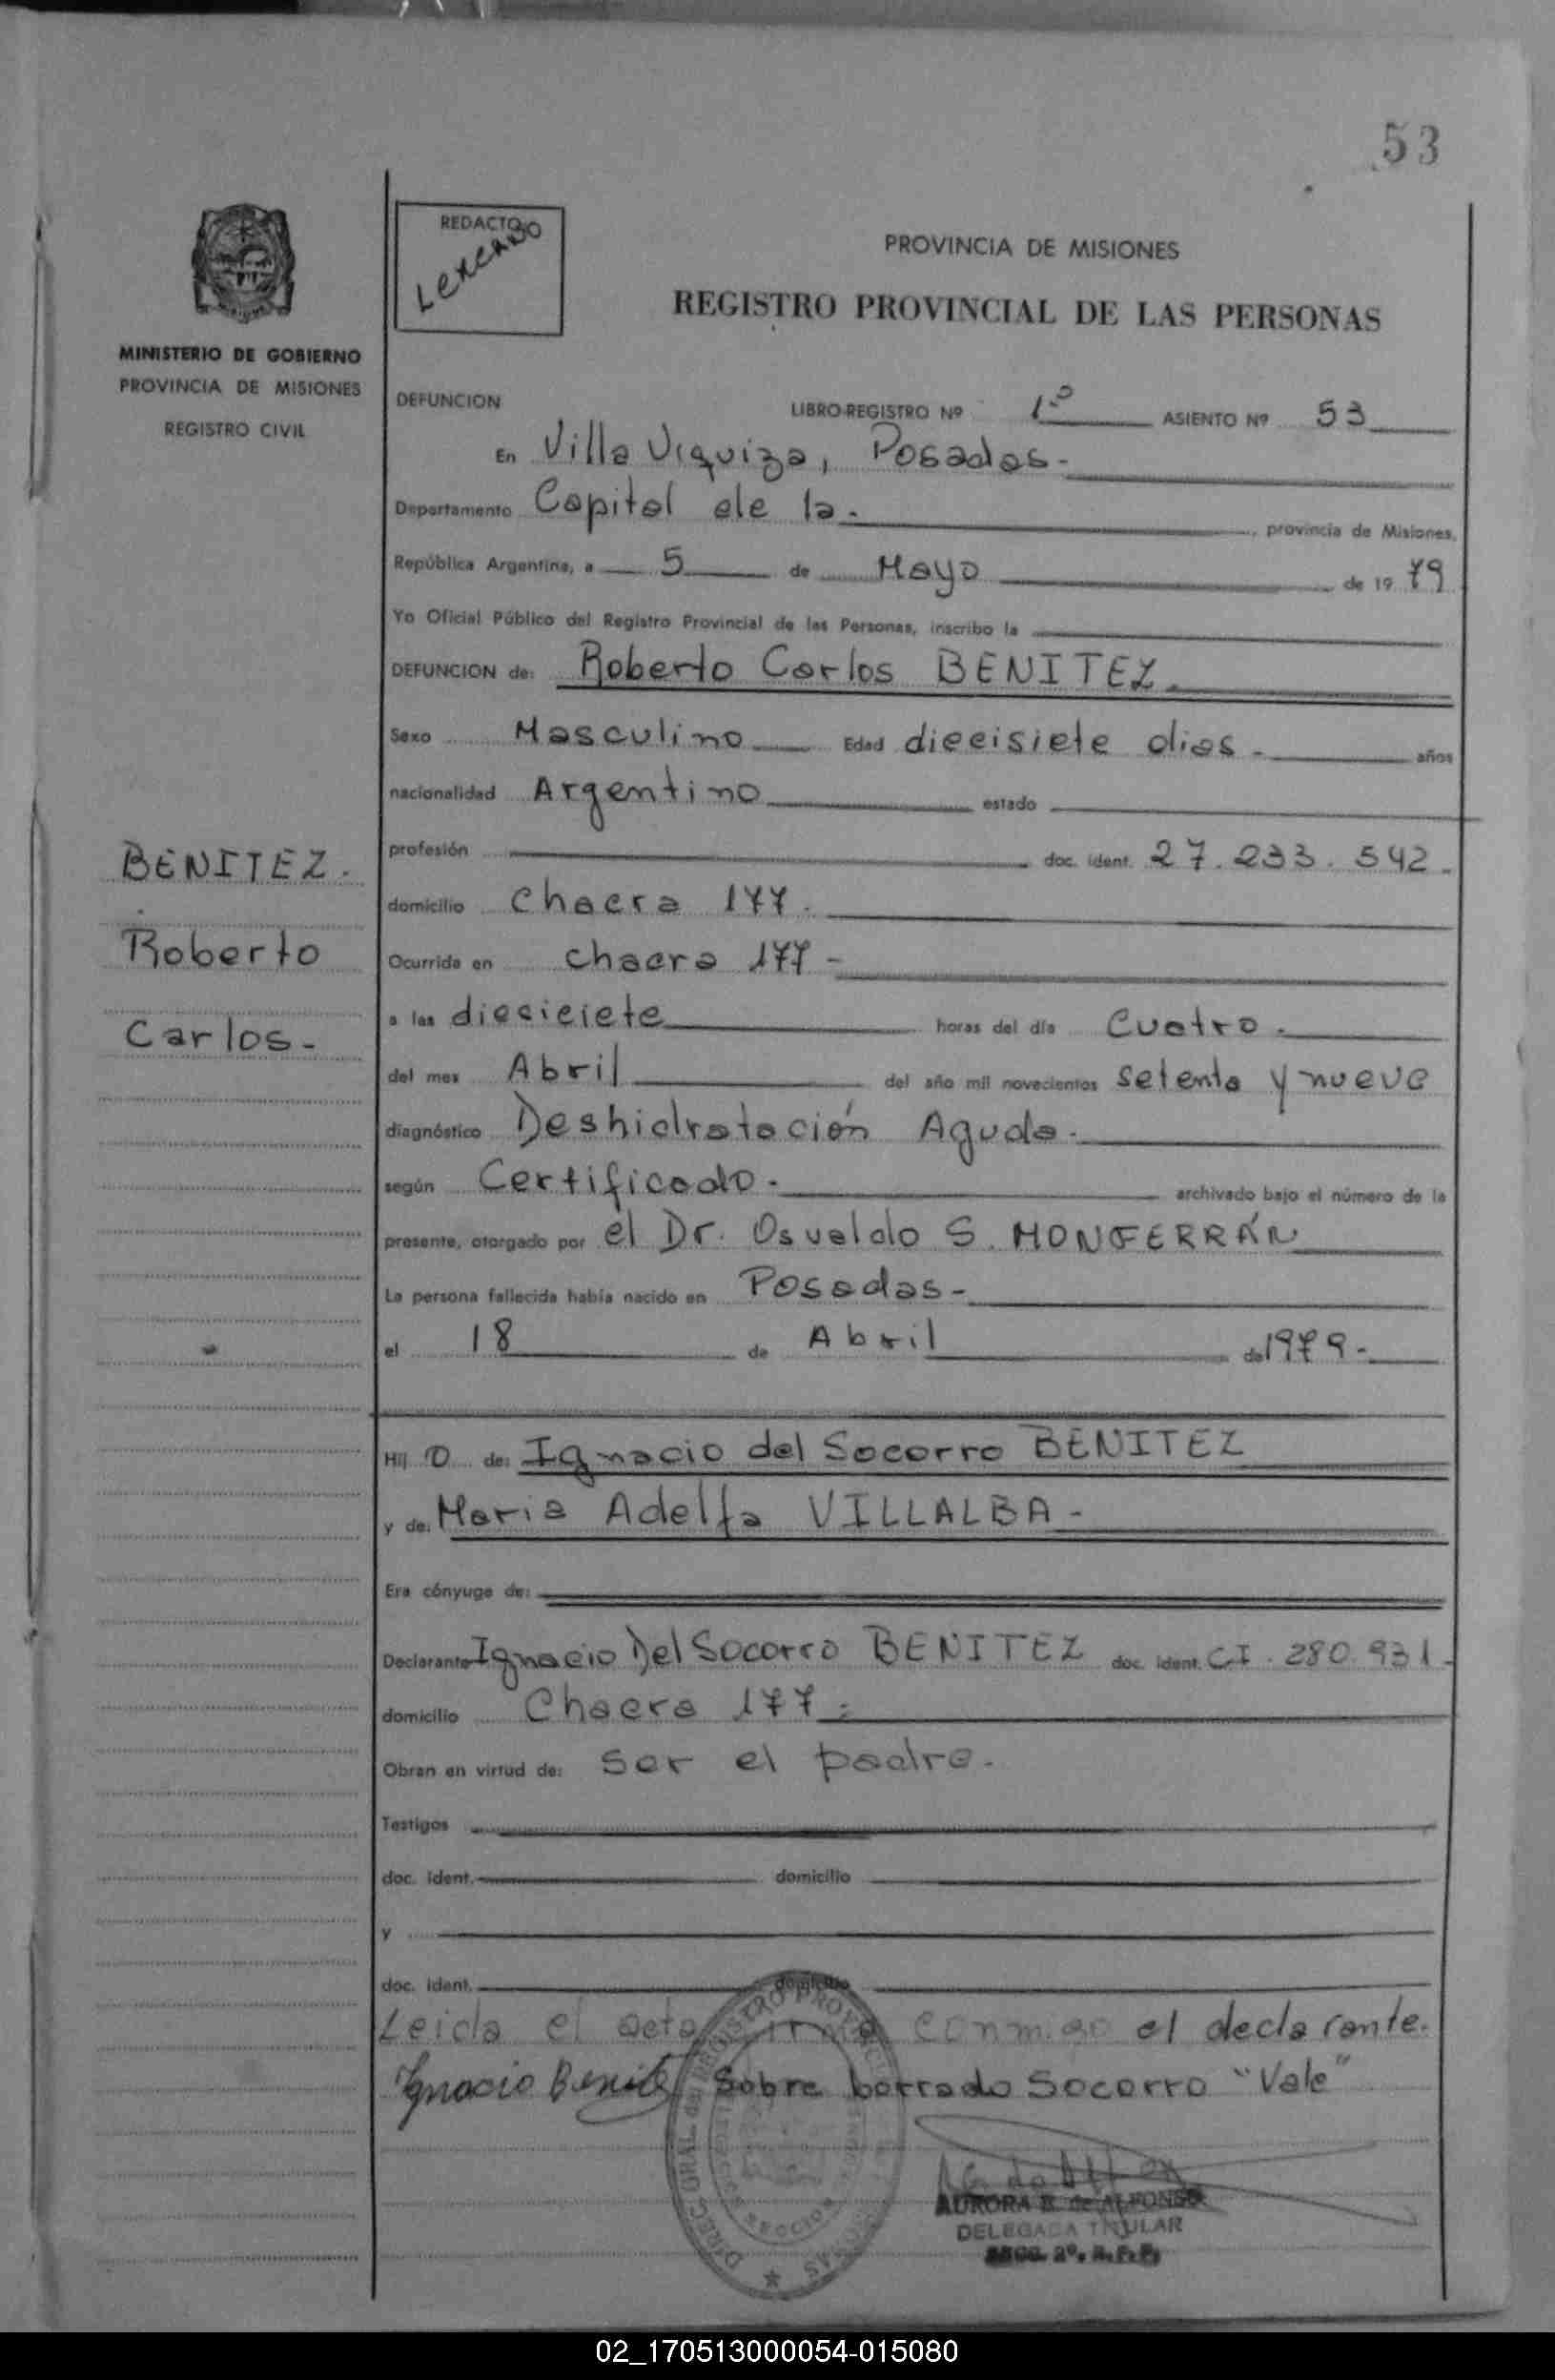 53
REDACTO
PROVINCIA DE MISIONES
REGISTRO PROVINCIAL DE LAS PERSONAS
MINISTERIO DE GOBIERNO
PROVINCIA DE MISIONES
REGISTRO CIVIL
DEFUNCION LIBRO-REGISTRO Nº 1º ASIENTO Nº 53
En Villa Urquiza, Posadas-
Departamento Capital de la. provincia de Misiones,
República Argentina, a 5 de Mayo de 19 79
Yo Oficial Público del Registro Provincial de las Personas, inscribo la
DEFUNCION de: Roberto Carlos BENITEZ.
Sexo Masculino Edad diecisiete dias. años
nacionalidad Argentino estado
profesión doc. ident. 27.233.542.
BENITEZ.
Roberto
Carlos-
domicilio Chacra 177.
Ocurrida en chacra 177-
a las diesiciete horas del día Cuatro.
del mes Abril del año mil novecientos setenta y nueve
diagnóstico Deshidratación Aguda.
según Certificado. archivado bajo el número de la
presente, otorgado por el Dr. Osvaldo S. MONFERRÁN
La persona fallecida había nacido en Posadas-
el 18 de Abril de 1979.-
Hij o de: Ignacio del Socorro BENITEZ
y de: Maria Adelfa VILLALBA-
Era cónyuge de:
Declarante Ignacio Del Socorro BENITEZ doc. ident. C.I. 280.931-
domicilio Chacra 177.
Obran en virtud de: Ser el padre.
Testigos
doc. ident. domicilio
y
doc. ident. domicilio
Leida el acta firma conmigo el declarante.
Ignacio Benitez Sobre borrado Socorro "Vale"
AURORA E. de ALFONSO
DELEGADA TITULAR
02_170513000054-015080